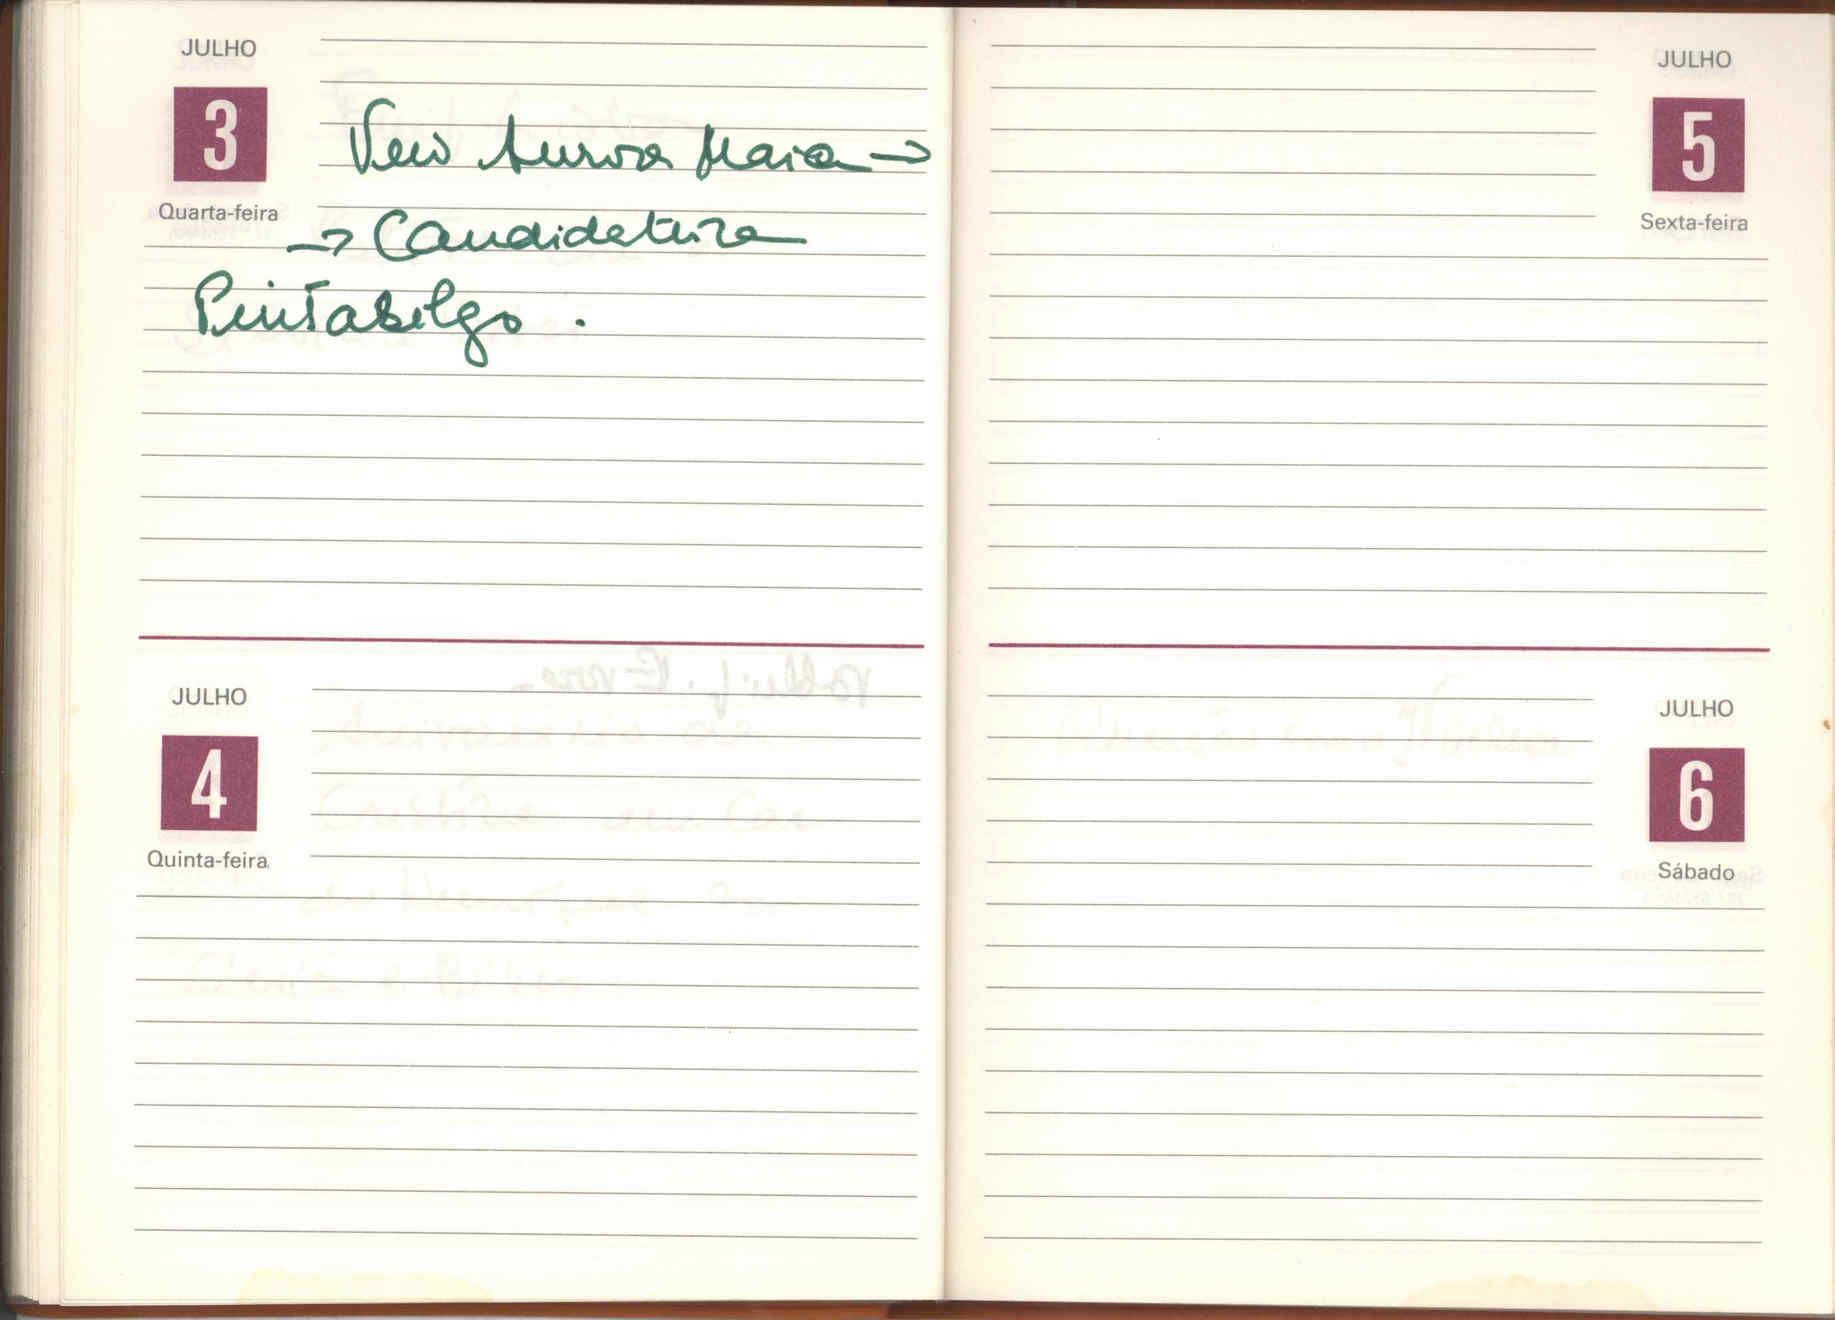 JULHO
3
Quarta-feira
Veio Aurora Maia →
→ Candidatura
Pintasilgo .
JULHO
4
Quinta-feira
JULHO
5
Sexta-feira
JULHO
6
Sábado